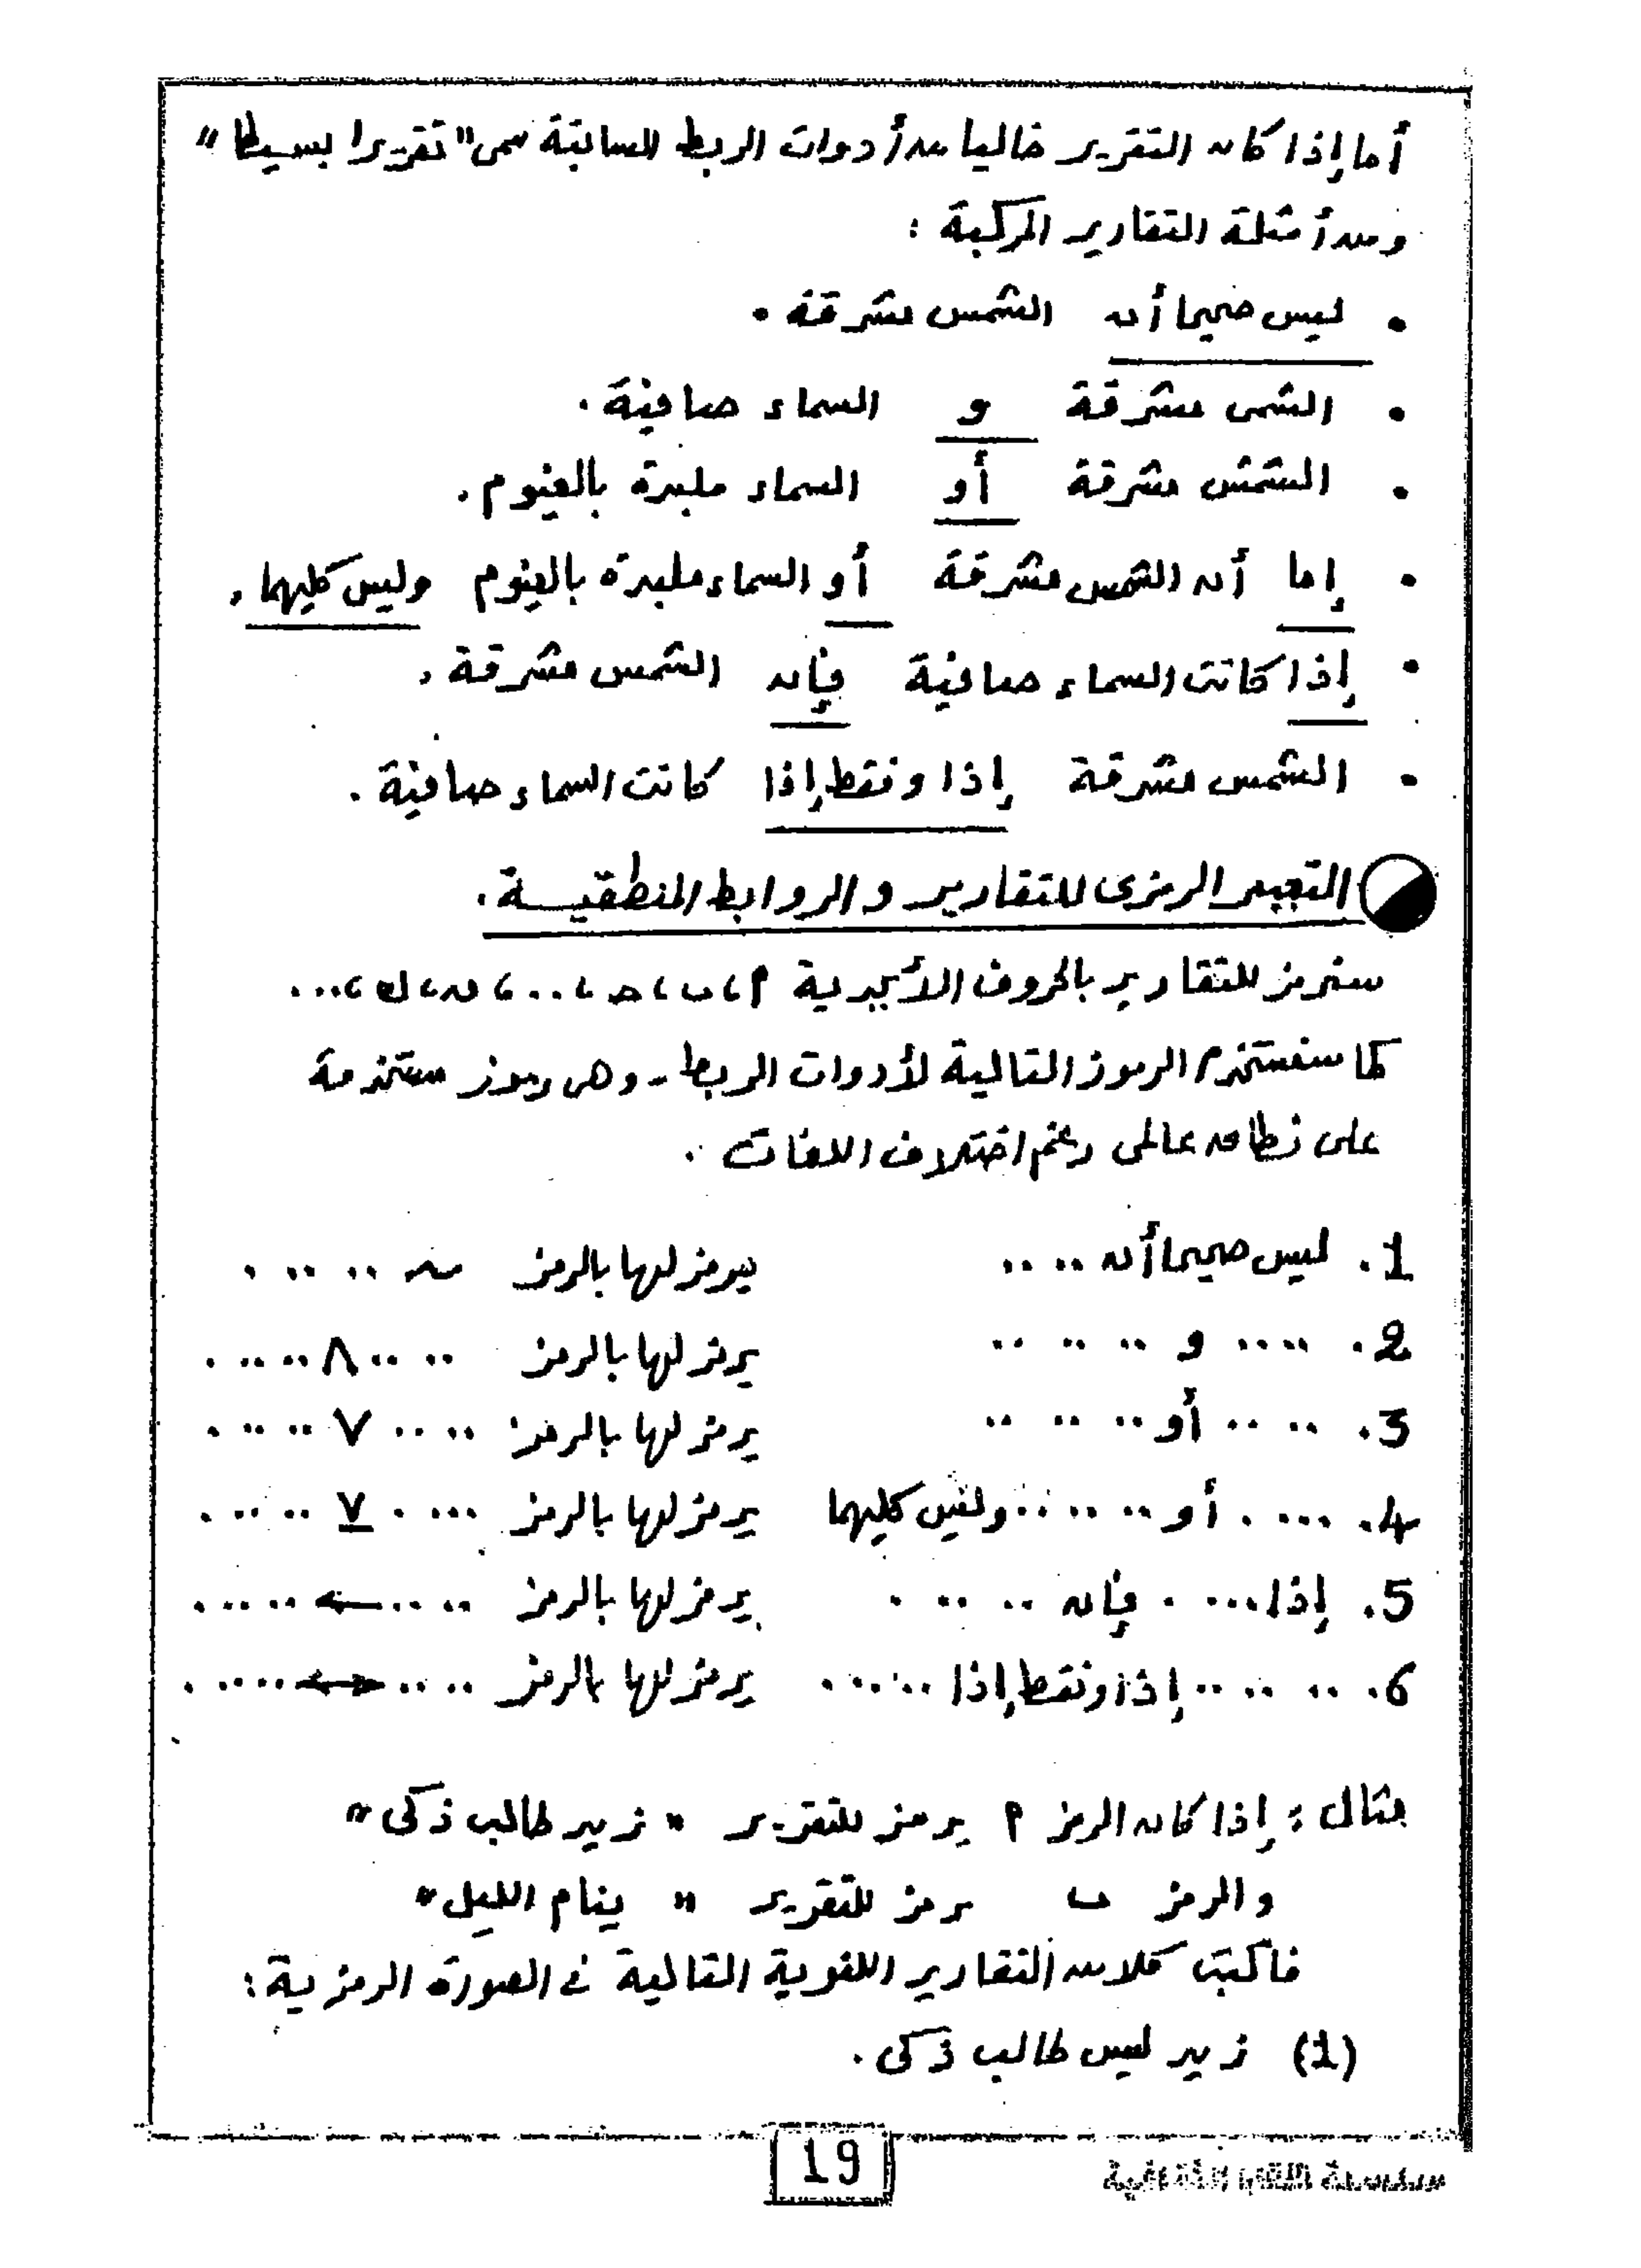 أما إذا كان التقرير خاليا من أدوات الربط السابقة سمى "تقريرا بسيطا"
ومن أمثلة التقارير المركبة :
• ليس صحيحا أن الشمس مشرقة .
• الشمس مشرقة و السماء صافية .
• الشمس مشرقة أو السماء ملبدة بالغيوم .
• إما أن الشمس مشرقة أو السماء ملبدة بالغيوم وليس كليهما .
• إذا كانت السماء صافية فإن الشمس مشرقة .
• الشمس مشرقة إذا وفقط إذا كانت السماء صافية .
التعبير الرمزى للتقارير و الروابط المنطقيــة .
سنرمز للتقارير بالحروف الأبجدية ا ، ب ، حـ ، ... ، ن ، ك ، ...
كما سنستخدم الرموز التالية لأدوات الربط - وهى رموز مستخدمة
على نطاق عالمى رغم اختلاف اللغات .
1. ليس صحيحا أن .... يرمز لها بالرمز ~ .....
2. .... و ...... يرمز لها بالرمز .... ∧ .....
3. .... أو ...... يرمز لها بالرمز .... ∨ .....
4. .... أو ...... وليس كليهما يرمز لها بالرمز .... ⊻ .....
5. إذا .... فإن ..... يرمز لها بالرمز .... ← .....
6. ...... إذا وفقط إذا ..... يرمز لها بالرمز .... ↔ .....
مثال : إذا كان الرمز ا يرمز للتقرير " زيد طالب ذكى "
والرمز ب يرمز للتقرير " ينام الليل "
فاكتب كلا من التقارير اللغوية التالية فى الصورة الرمزية :
(1) زيد ليس طالب ذكى .
19